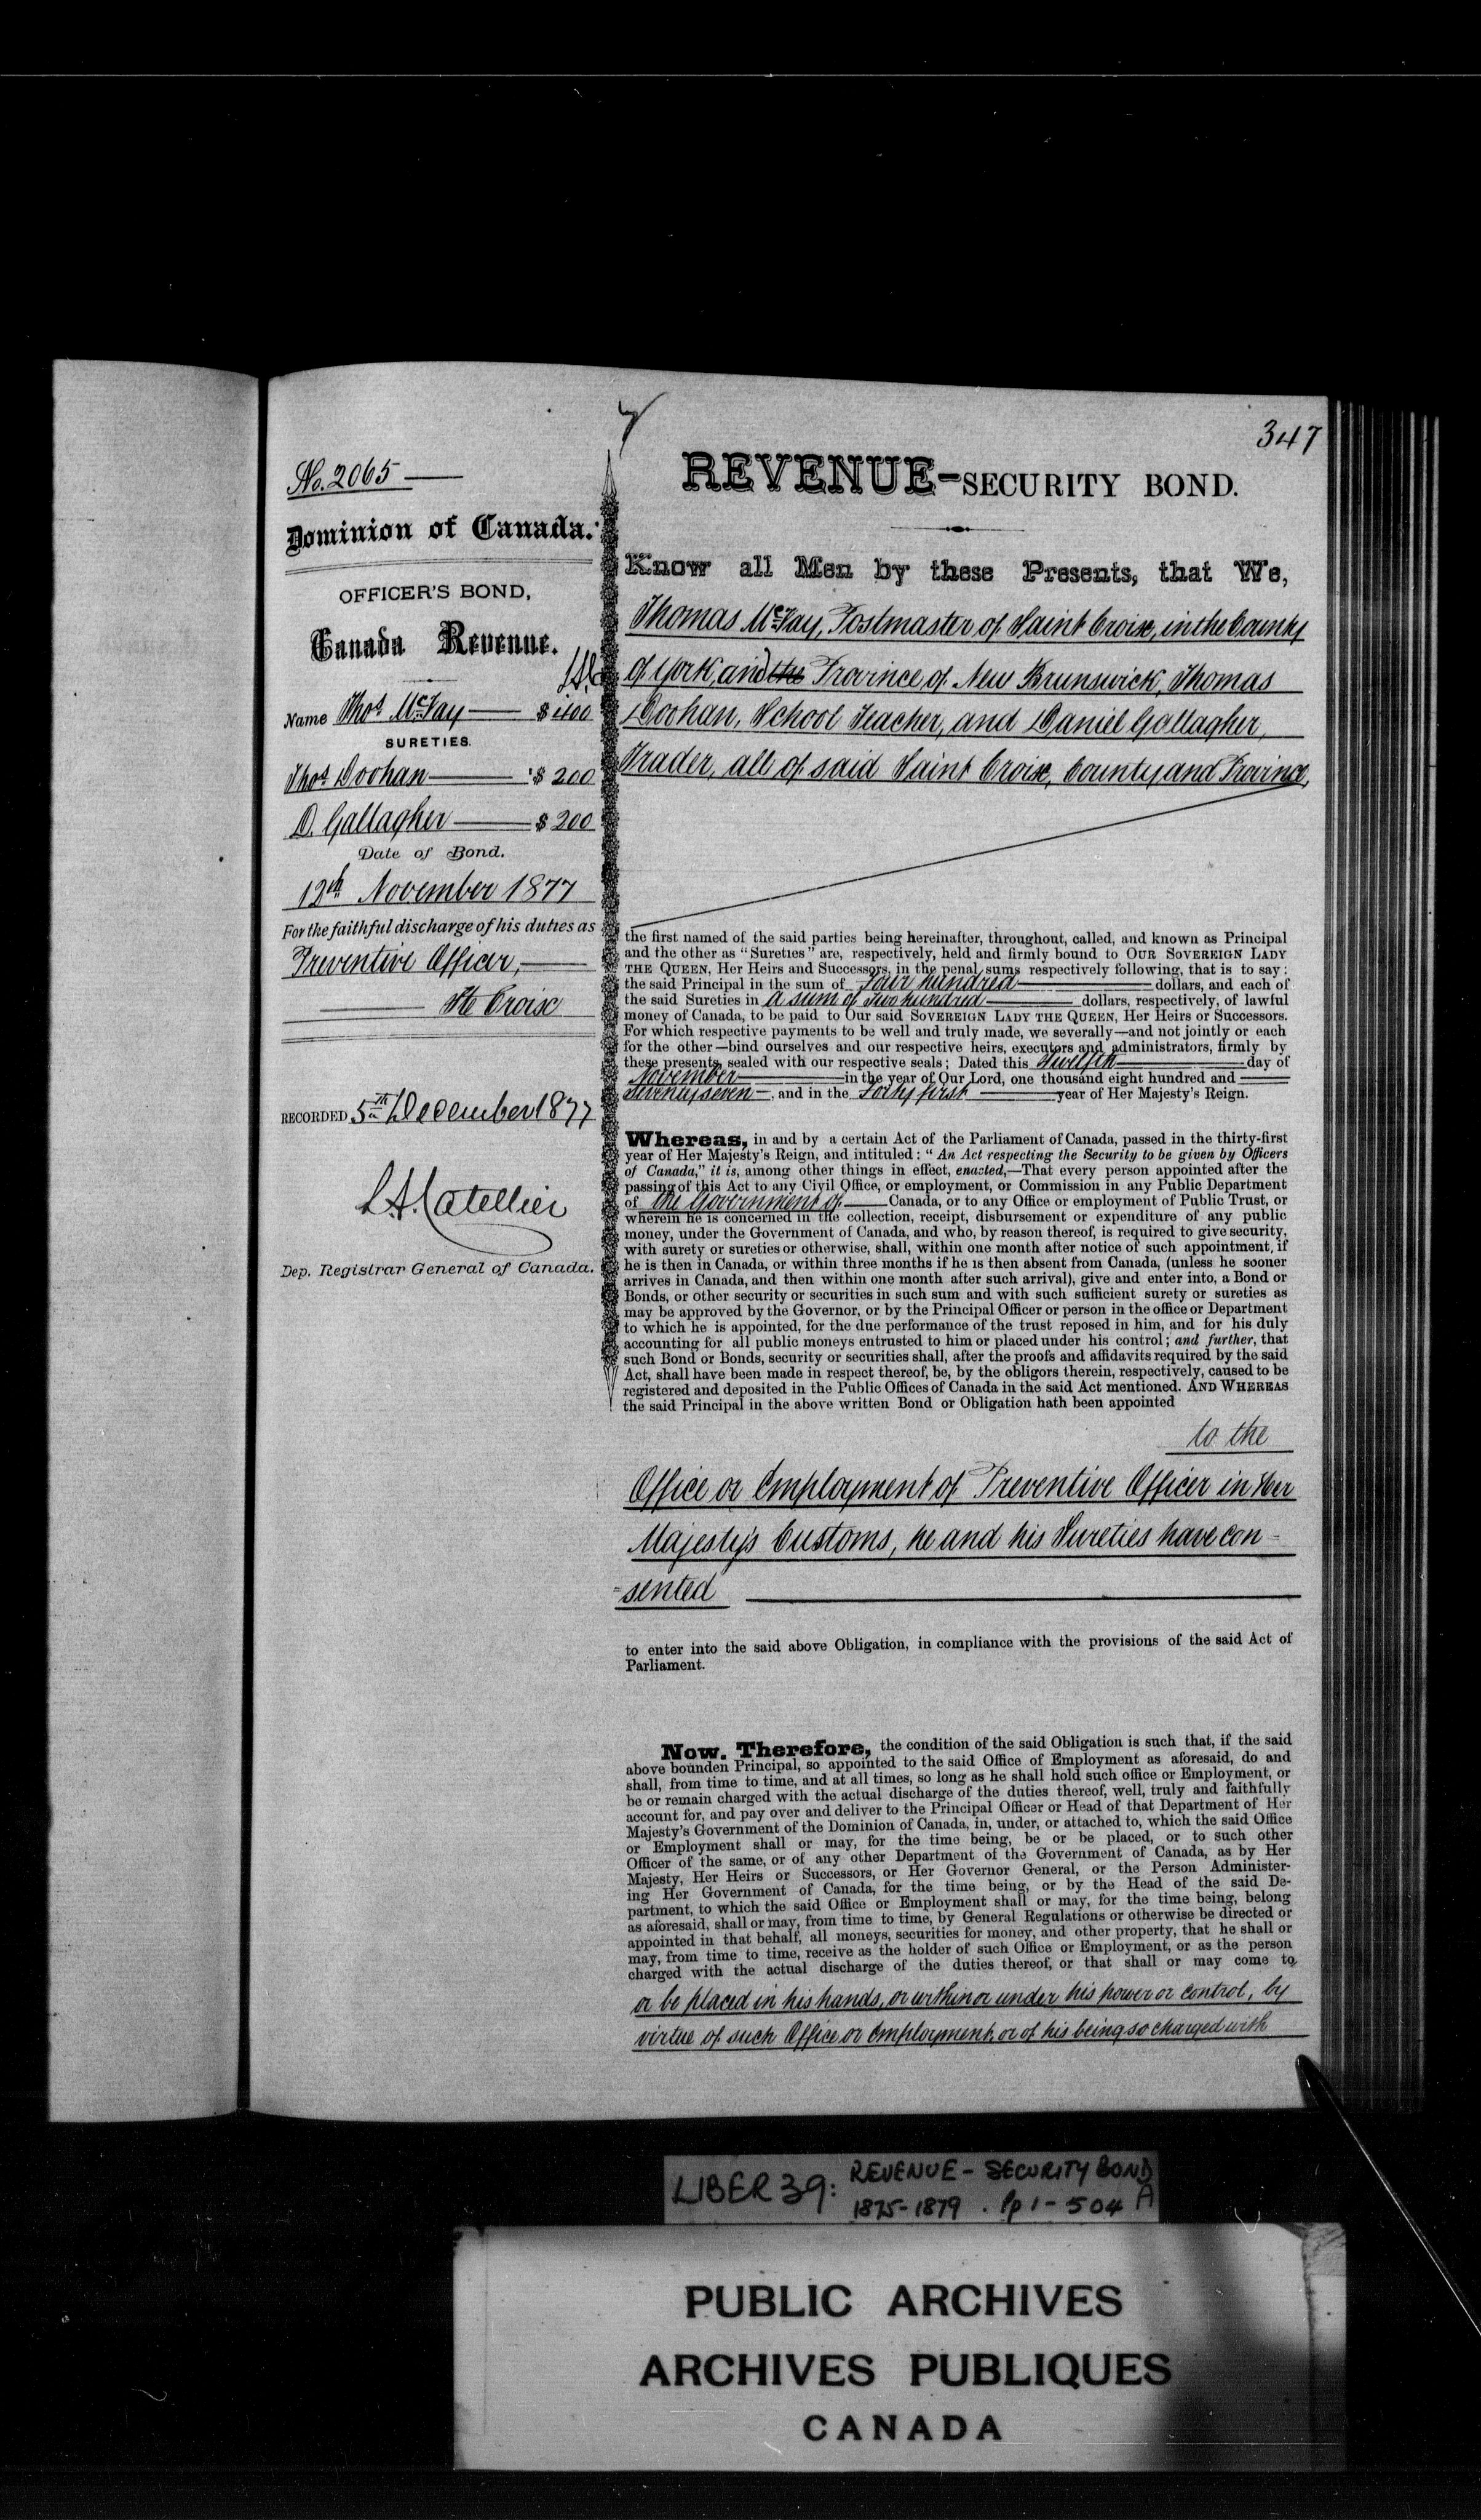 347
No. 2065
Dominion of Canada.
OFFICER'S BOND,
Canada Revenue.
Name Thos McFay $400
SURETIES.
Thos Doohan $200
D. Gallagher $200
Date of Bond.
12th November 1877
For the faithful discharge of his duties as
Preventive Officer,
Ste Croix
RECORDED 5th December 1877
L.A. Catellier
Dep. Registrar General of Canada.
REVENUE-SECURITY BOND.
Know all Men by these Presents, that We,
Thomas McFay, Postmaster of Saint Croix, in the County
of York, and the Province of New Brunswick, Thomas
Doohan, School Teacher, and Daniel Gallagher,
Trader, all of said Saint Croix, County and Province,
the first named of the said parties being hereinafter, throughout, called, and known as Principal
and the other as "Sureties" are, respectively, held and firmly bound to OUR SOVEREIGN LADY
THE QUEEN, Her Heirs and Successors, in the penal sums respectively following, that is to say:
the said Principal in the sum of Four hundred dollars, and each of
the said Sureties in a sum of Two hundred dollars, respectively, of lawful
money of Canada, to be paid to Our said SOVEREIGN LADY THE QUEEN, Her Heirs or Successors.
For which respective payments to be well and truly made, we severally—and not jointly or each
for the other—bind ourselves and our respective heirs, executors and administrators, firmly by
these presents, sealed with our respective seals; Dated this Twelfth day of
November in the year of Our Lord, one thousand eight hundred and
Seventy seven, and in the Forty first year of Her Majesty's Reign.
Whereas, in and by a certain Act of the Parliament of Canada, passed in the thirty-first
year of Her Majesty's Reign, and intituled: "An Act respecting the Security to be given by Officers
of Canada," it is, among other things in effect, enacted,—That every person appointed after the
passing of this Act to any Civil Office, or employment, or Commission in any Public Department
of the Government of Canada, or to any Office or employment of Public Trust, or
wherein he is concerned in the collection, receipt, disbursement or expenditure of any public
money, under the Government of Canada, and who, by reason thereof, is required to give security,
with surety or sureties or otherwise, shall, within one month after notice of such appointment, if
he is then in Canada, or within three months if he is then absent from Canada, (unless he sooner
arrives in Canada, and then within one month after such arrival), give and enter into, a Bond or
Bonds, or other security or securities in such sum and with such sufficient surety or sureties as
may be approved by the Governor, or by the Principal Officer or person in the office or Department
to which he is appointed, for the due performance of the trust reposed in him, and for his duly
accounting for all public moneys entrusted to him or placed under his control; and further, that
such Bond or Bonds, security or securities shall, after the proofs and affidavits required by the said
Act, shall have been made in respect thereof, be, by the obligors therein, respectively, caused to be
registered and deposited in the Public Offices of Canada in the said Act mentioned. AND WHEREAS
the said Principal in the above written Bond or Obligation hath been appointed
to the
Office or Employment of Preventive Officer in Her
Majesty's Customs, he and his Sureties have con-
-sented
to enter into the said above Obligation, in compliance with the provisions of the said Act of
Parliament.
Now, Therefore, the condition of the said Obligation is such that, if the said
above bounden Principal, so appointed to the said Office of Employment as aforesaid, do and
shall, from time to time, and at all times, so long as he shall hold such office or Employment, or
be or remain charged with the actual discharge of the duties thereof, well, truly and faithfully
account for, and pay over and deliver to the Principal Officer or Head of that Department of Her
Majesty's Government of the Dominion of Canada, in, under, or attached to, which the said Office
or Employment shall or may, for the time being, be or be placed, or to such other
Officer of the same, or of any other Department of the Government of Canada, as by Her
Majesty, Her Heirs or Successors, or Her Governor General, or the Person Administer-
ing Her Government of Canada, for the time being, or by the Head of the said De-
partment, to which the said Office or Employment shall or may, for the time being, belong
as aforesaid, shall or may, from time to time, by General Regulations or otherwise be directed or
appointed in that behalf, all moneys, securities for money, and other property, that he shall or
may, from time to time, receive as the holder of such Office or Employment, or as the person
charged with the actual discharge of the duties thereof, or that shall or may come to,
or be placed in his hands, or within or under his power or control, by
virtue of such Office or Employment, or of his being so charged with
LIBER 39: REVENUE - SECURITY BOND
1875-1879 . Pp 1 - 504 A
PUBLIC ARCHIVES
ARCHIVES PUBLIQUES
CANADA